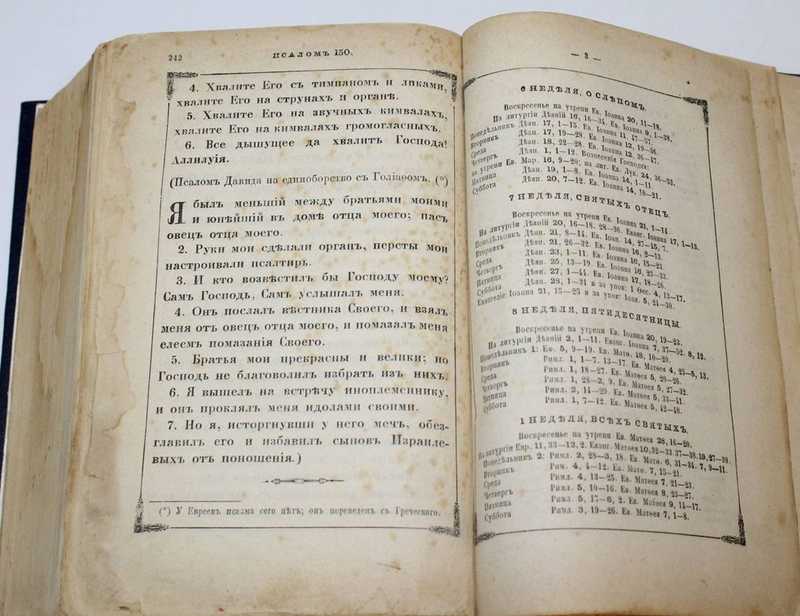 242
ПСАЛОМЪ 150.
4. Хвалите Его съ тимпаномъ и ликами,
хвалите Его на струнахъ и органѣ.
5. Хвалите Его на звучныхъ кимвалахъ,
хвалите Его на кимвалахъ громогласныхъ.
6. Все дышущее да хвалитъ Господа!
Аллилуія.
(Псаломъ Давида на единоборство съ Голіаѳомъ. (*)
Я былъ меньшій между братьями моими
и юнѣйшій въ домѣ отца моего; пасъ
овецъ отца моего.
2. Руки мои сдѣлали органъ, персты мои
настроивали псалтирь.
3. И кто возвѣстилъ бы Господу моему?
Самъ Господь, Самъ услышалъ меня.
4. Онъ послалъ вѣстника Своего, и взялъ
меня отъ овецъ отца моего, и помазалъ меня
елеемъ помазанія Своего.
5. Братья мои прекрасны и велики; но
Господь не благоволилъ избрать изъ нихъ.
6. Я вышелъ на встрѣчу иноплеменнику,
и онъ проклялъ меня идолами своими.
7. Но я, исторгнувши у него мечъ, обез-
главилъ его и избавилъ сыновъ Израиле-
выхъ отъ поношенія.)
(*) У Евреевъ псалма сего нѣтъ; онъ переведенъ съ Греческаго.
6 НЕДѢЛЯ, О СЛѢПОМЪ.
Воскресенье на утрени Ев. Іоанна 20, 11—18.
На литургіи Дѣяній 16, 16—34. Ев. Іоанна 9, 1—38.
Понедѣльникъ Дѣян. 17, 1—15. Ев. Іоанна 11, 47—57.
Вторникъ Дѣян. 17, 19—28. Ев. Іоанна 12, 19—36.
Среда Дѣян. 18, 22—28. Ев. Іоанна 12, 36—47.
Четвергъ Дѣян. 1, 1—12. Вознесеніе Господне:
на утрени Ев. Мар. 16, 9—20; на лит. Ев. Лук. 24, 36—53.
Пятница Дѣян. 19, 1—8. Ев. Іоанна 14, 1—11.
Суббота Дѣян. 20, 7—12. Ев. Іоанна 14, 10—21.
7 НЕДѢЛЯ, СВЯТЫХЪ ОТЕЦЪ.
Воскресенье на утрени Ев. Іоанна 21, 1—14.
На литургіи Дѣяній 20, 16—18. 28—36. Еванг. Іоанна 17, 1—13.
Понедѣльникъ Дѣян. 21, 8—14. Ев. Іоан. 14, 27—15, 7.
Вторникъ Дѣян. 21, 26—32. Ев. Іоанна 16, 2—13.
Среда Дѣян. 23, 1—11. Ев. Іоанна 16, 15—23.
Четвергъ Дѣян. 25, 13—19. Ев. Іоанна 16, 23—33.
Пятница Дѣян. 27, 1—44. Ев. Іоанна 17, 18—26.
Суббота Дѣян. 28, 1—31 и за упок: 1 Ѳес. 4, 13—17.
Евангеліе: Іоанна 21, 15—25 и за упок: Іоан. 5, 24—30.
8 НЕДѢЛЯ, ПЯТИДЕСЯТНИЦЫ.
Воскресенье на утрени Ев. Іоанна 20, 19—23.
На литургіи Дѣяній 2, 1—11. Еванг. Іоанна 7, 37—52. 8, 12.
Понедѣльникъ 1: Еф. 5, 9—19. Ев. Матѳ. 18, 10—20.
Вторникъ Римл. 1, 1—7. 13—17. Ев. Матѳея 4, 25—5, 13.
Среда Римл. 1, 18—27. Ев. Матѳея 5, 20—26.
Четвергъ Римл. 1, 28—2, 9. Ев. Матѳея 5, 27—32.
Пятница Римл. 2, 14—29. Ев. Матѳея 5, 33—41.
Суббота Римл. 1, 7—12. Ев. Матѳея 5, 42—48.
1 НЕДѢЛЯ, ВСѢХЪ СВЯТЫХЪ.
Воскресенье на утрени Ев. Матѳея 28, 16—20.
На литургіи Евр. 11, 33—12, 2. Еванг. Матѳея 10, 32—33. 37—38. 19, 27—30.
Понедѣльникъ 2: Римл. 2, 28—3, 18. Ев. Матѳ. 6, 31—34. 7, 9—11.
Вторникъ Рим. 4, 4—12. Ев. Матѳ. 7, 15—21.
Среда Римл. 4, 13—25. Ев. Матѳея 7, 21—23.
Четвергъ Римл. 5, 10—16. Ев. Матѳея 8, 23—27.
Пятница Римл. 5, 17—6, 2. Ев. Матѳея 9, 14—17.
Суббота Римл. 3, 19—26. Ев. Матѳея 7, 1—8.